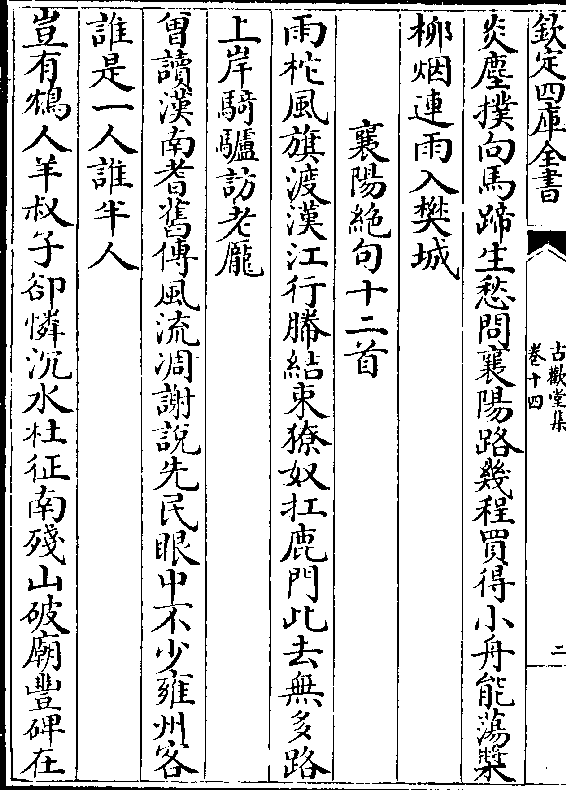 欽定四庫全書
古歡堂集
卷十四
二
炎塵撲向馬蹄生愁問襄陽路幾程買得小舟能蕩槳
柳烟連雨入樊城
襄陽絶句十二首
雨柁風旗渡漢江行縢結束獠奴扛鹿門此去無多路
上岸騎驢訪老龐
曾讀漢南耆舊傳風流凋謝說先民眼中不少雍州客
誰是一人誰半人
豈有鴆人羊叔子卻憐沉水杜征南殘山破廟豐碑在